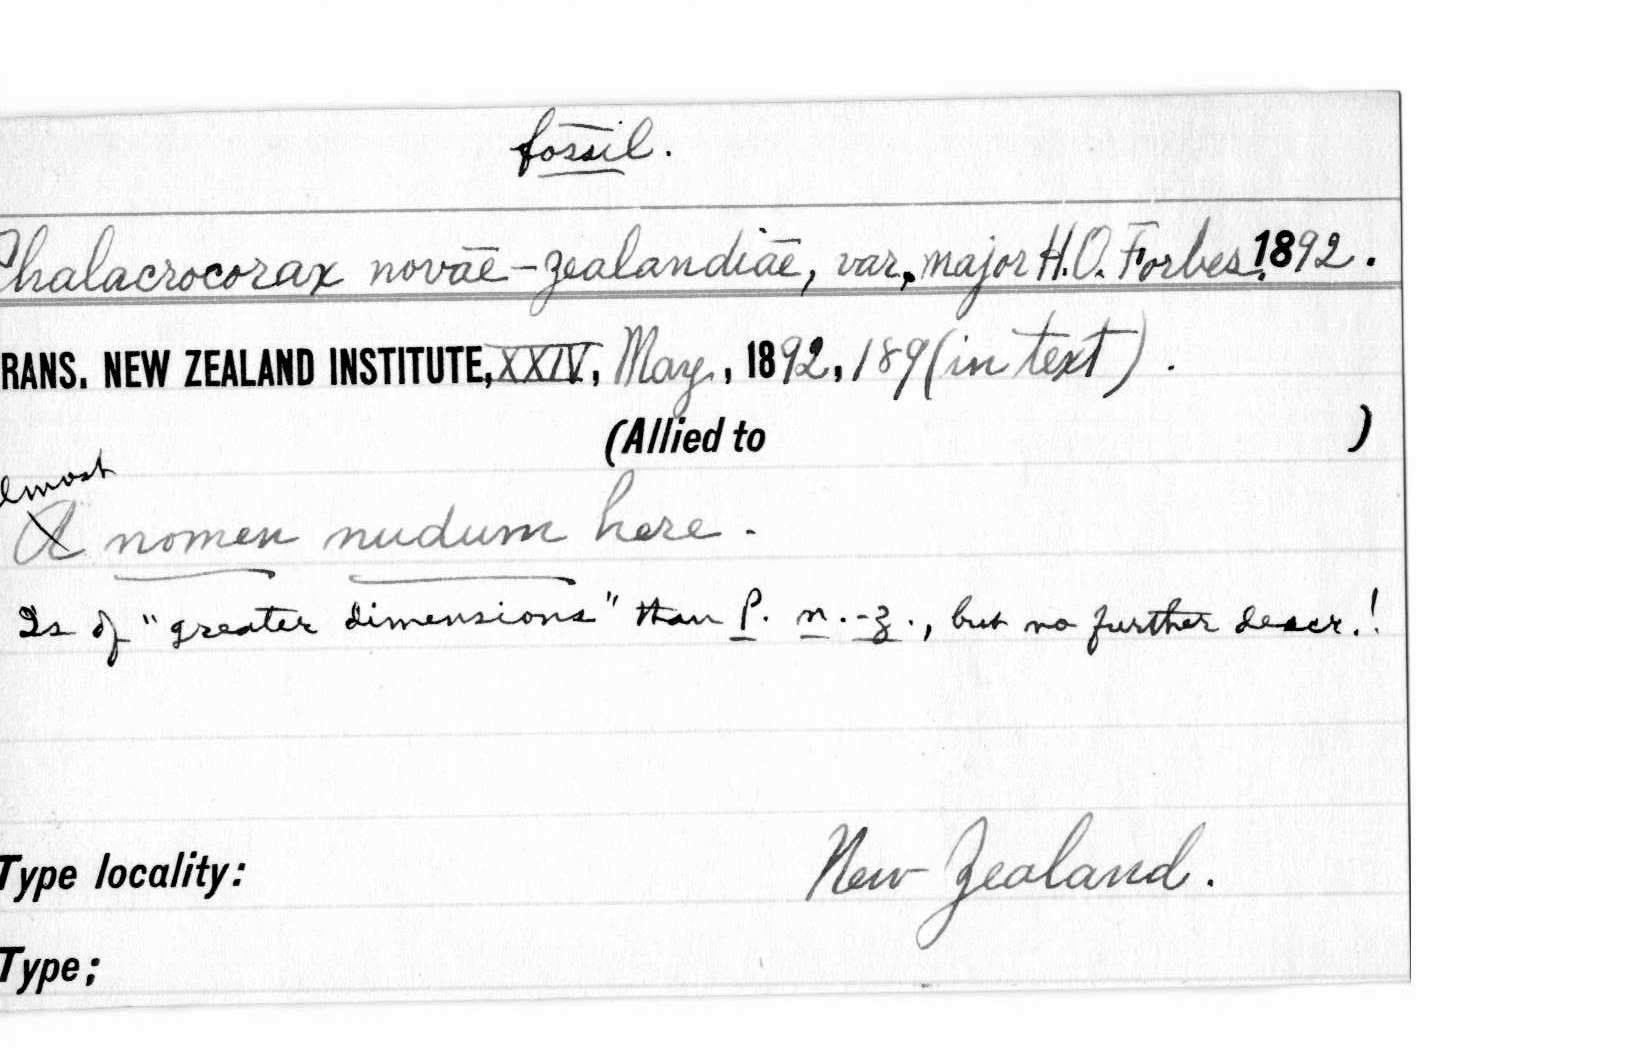 fossil.
Phalacrocorax novae-zealandiae, var. major H.O. Forbes, 1892.
RANS. NEW ZEALAND INSTITUTE, XXIV, May, 1892, 189 (in text).
(Allied to )
lmost
A nomen nudum here.
Is of "greater dimensions" than P. n.-z., but no further descr.!
Type locality: New Zealand.
Type;